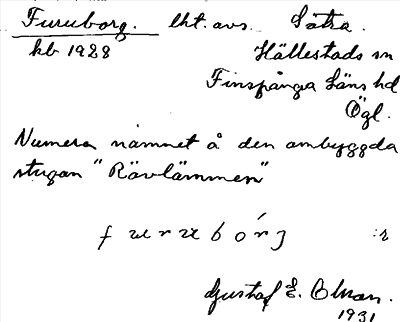 Furuborg. lht. avs. Sätra
kb 1928 Hällestads sn
Finspånga läns hd
Ögl.
Numera namnet å den ombyggda
stugan "Rävlämmen"
furubórj :r
Gustaf E. Olson.
1931